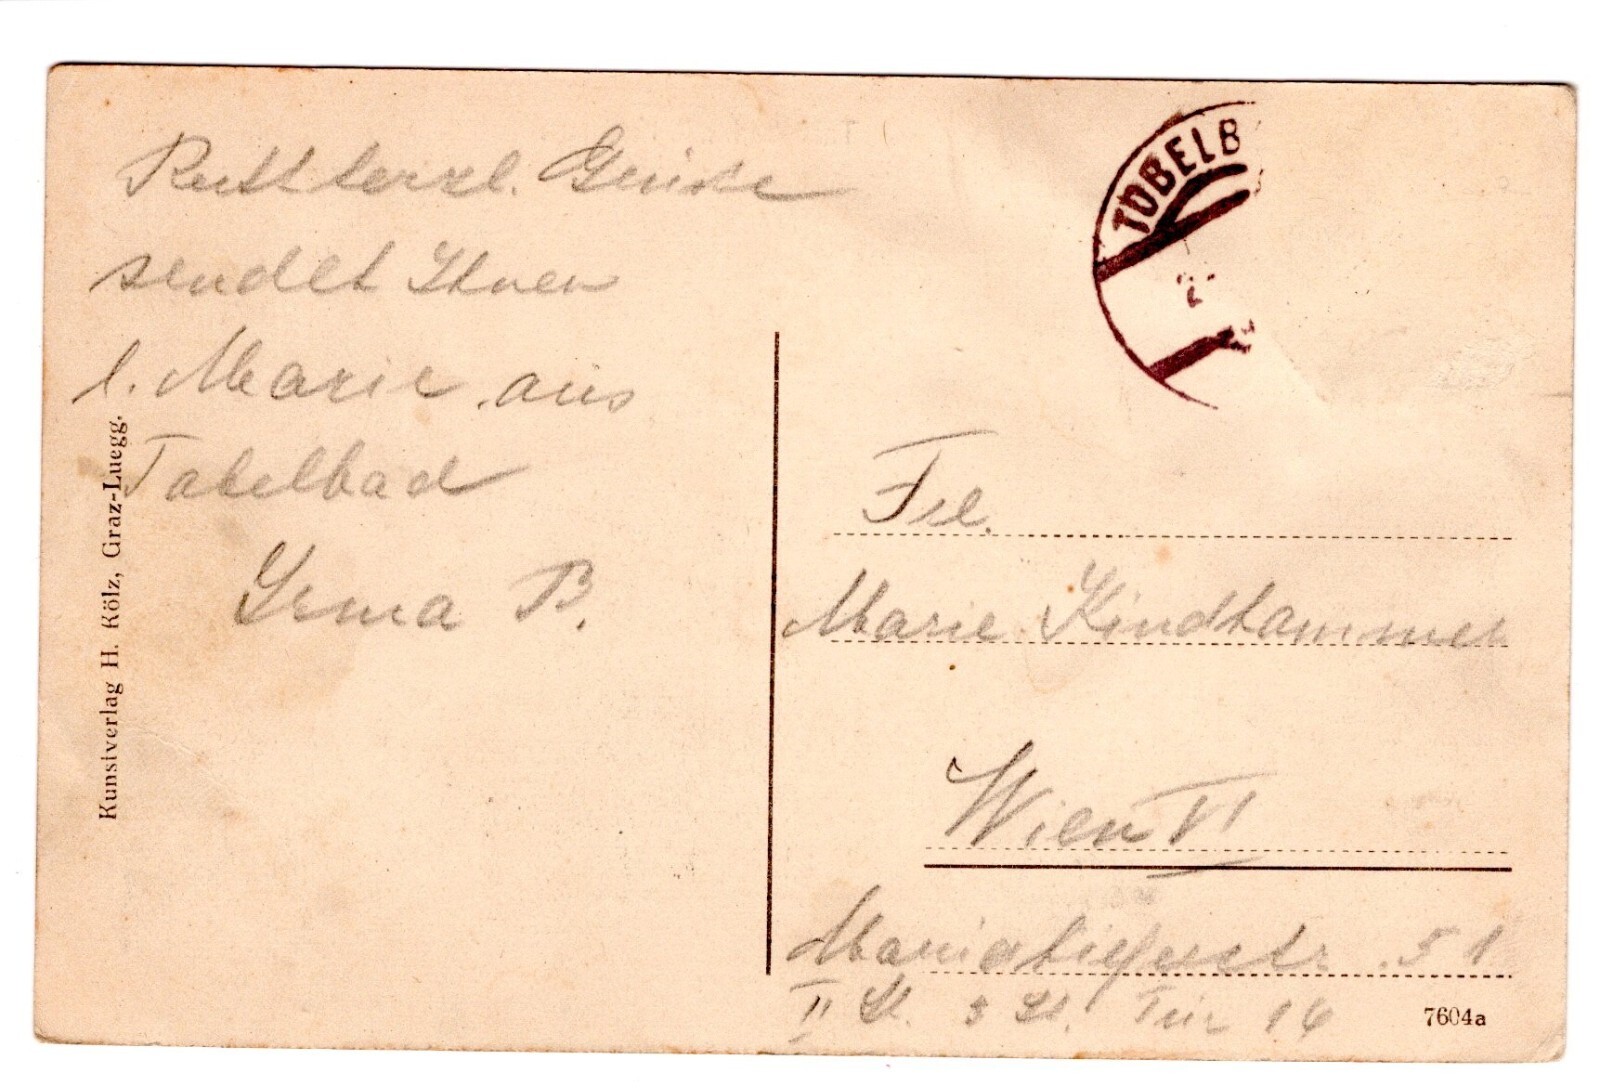 Recht herzl. Grüsse
sendet Ihnen
l. Marie aus
Tobelbad
Irma B.
Kunstverlag H. Kölz, Graz-Luegg.
TOBELB
2
Frl.
Marie Kindhammer
Wien VI
Mariahilferstr. 51
II St. 3 St. Tür 16
7604a